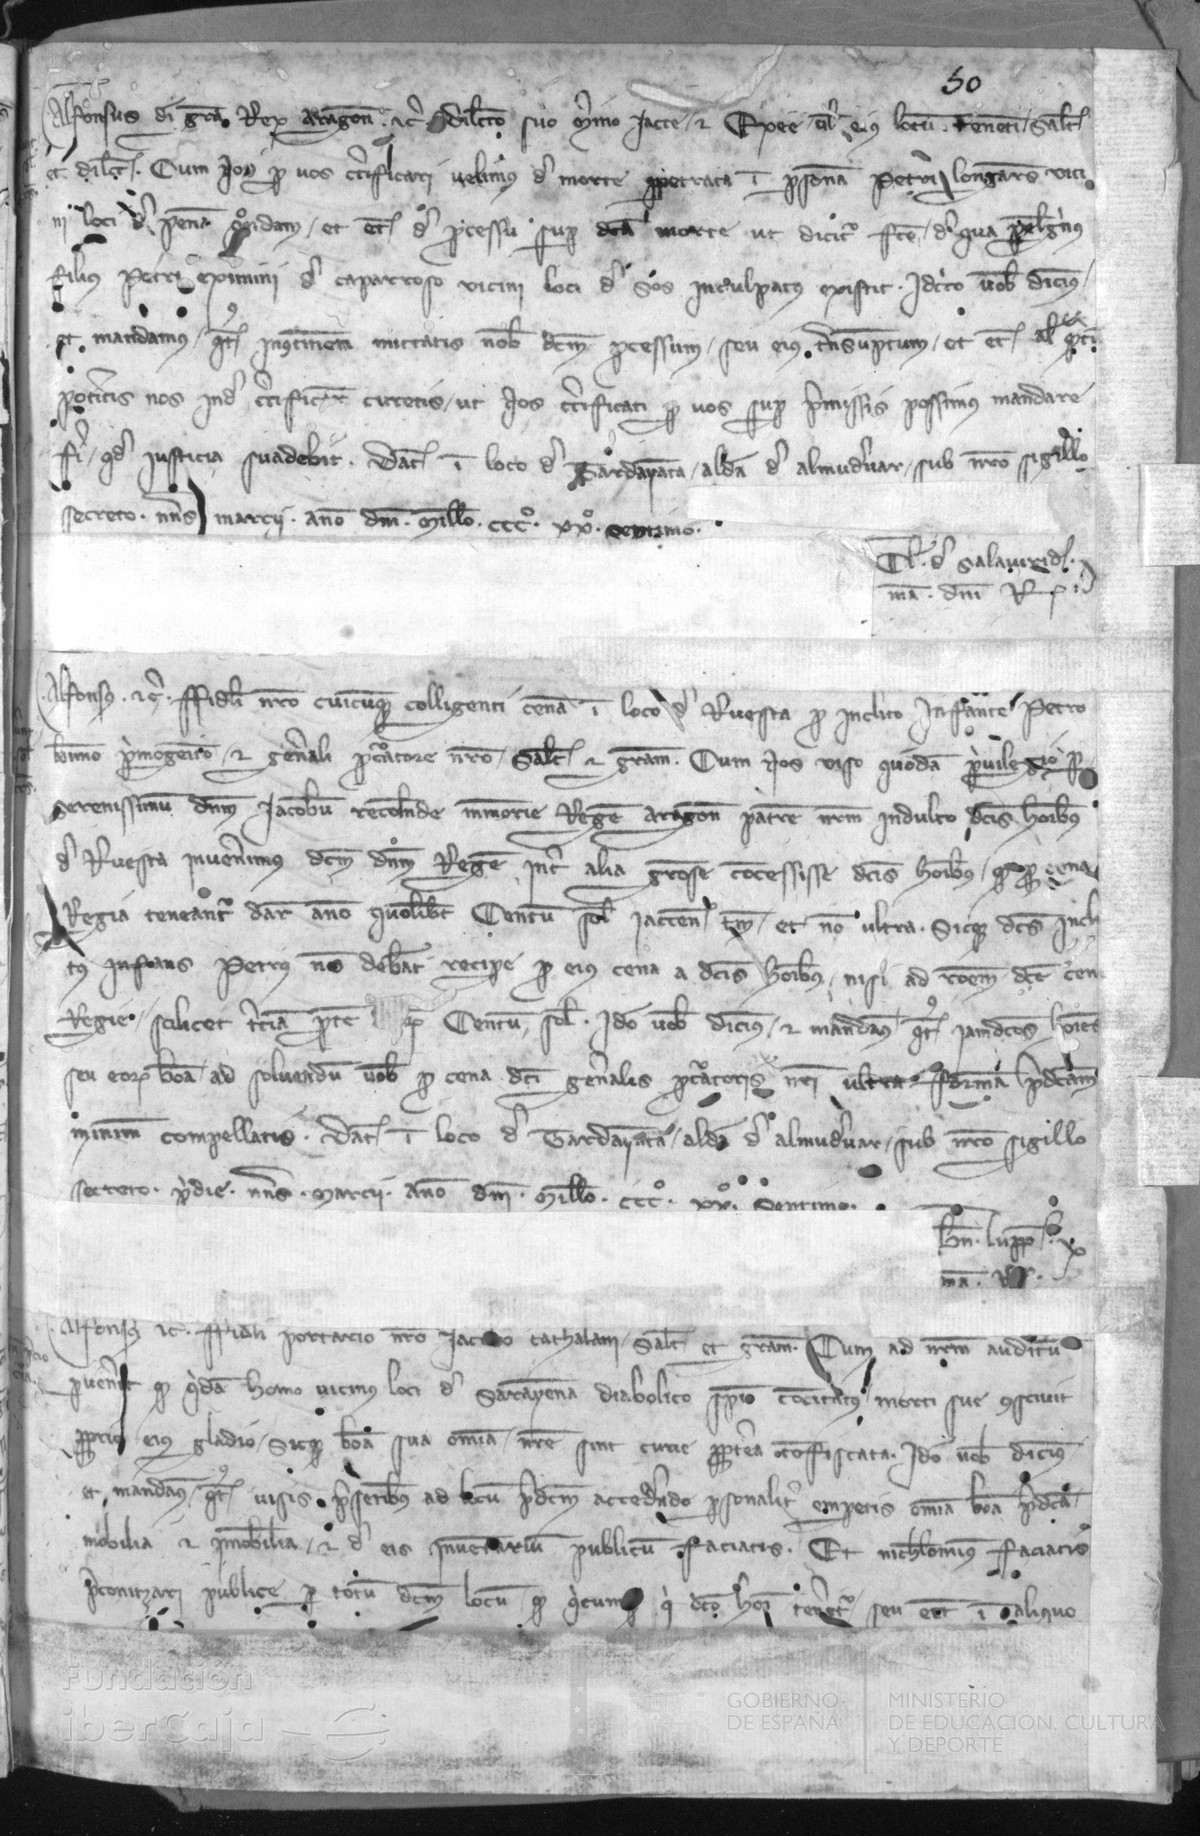 50
Alfonsus di gra Rex Aragon. etc. dilecto suo merino Jacce et Exee vel eius locum tenenti saltem
et dilect. Cum nos per vos certificari velimus de morte perpetrata in persona Petri Longares vici
ni loci de pena quondam et etiam de processu super dicta morte ut dicitur facto de qua
filius Petri Eximini de caparroso vicini loci de Sos inculpatus existit. Idcirco vobis dicimus
et mandamus quatenus incontinenti mittatis nobis dictum processum seu eius transumptum et etiam
poteritis nos inde certificare curetis ut nos certificati per vos super premissis possimus mandare
fieri quod justicia suadebit. Dat in loco de Gardapata aldea de almudevar sub nostro sigillo
secreto. nonas marcii. anno dni. Millo. CCCo. XXo. septimo.
de Salaviridi
ma. dni R
Alfonsus. etc. ffideli nostro cuicumque colligenti cenam in loco de Ruesta pro inclito Infante Petro
primogenito et generali procuratore nostro salutem et gratiam. Cum nos viso quodam privilegio per
serenissimum dnm Jacobum recolende memorie Regem aragon patrem nostrum indulto dictis hominibus
de Ruesta invenimus dictum dnm Regem inter alia graciose concessisse dictis hominibus quod pro cena
Regia teneantur dare anno quolibet Centum sol jaccen. tantum et non ultra. Sicque dictus incli
tus infans Petrus non debeat recipere pro eius cena a dictis hominibus nisi ad racionem dicte cene
Regie scilicet terciam partem Centum sol. Ideo vobis dicimus et mandamus quatenus jamdictos homines
seu eorum bona ad solvendum vobis pro cena dicti generalis procuratoris nostri ultra formam predictam
minime compellatis. Dat in loco de Gardapata aldea de almudevar sub nostro sigillo
secreto. pridie. nonas. Marcii. anno dni. Millo. CCCo. XXo. Septimo.
Bn. luppeti
ma. R
Alfonsus etc. ffideli porterio nostro Jacobo cathalani salutem et gratiam. Cum ad nostrum auditum
pervenerit quod quidam homo vicinus loci de Sarayena diabolico spiritu concitatus morti sue conscivit
proprio eius gladio sicque bona sua omnia nostre sint curie propterea confiscata. Ideo vobis dicimus
et mandamus quatenus visis presentibus ad locum predictum accedendo personaliter emparetis omnia bona predicta
mobilia et inmobilia et de eis inventarium publicum faciatis. Et nichilominus faciatis
preconitzari publice per totum dictum locum quod quicumque qui dicto homini teneretur seu erat in aliquo
Fundación
iberCaja
GOBIERNO
DE ESPAÑA
MINISTERIO
DE EDUCACIÓN, CULTURA
Y DEPORTE